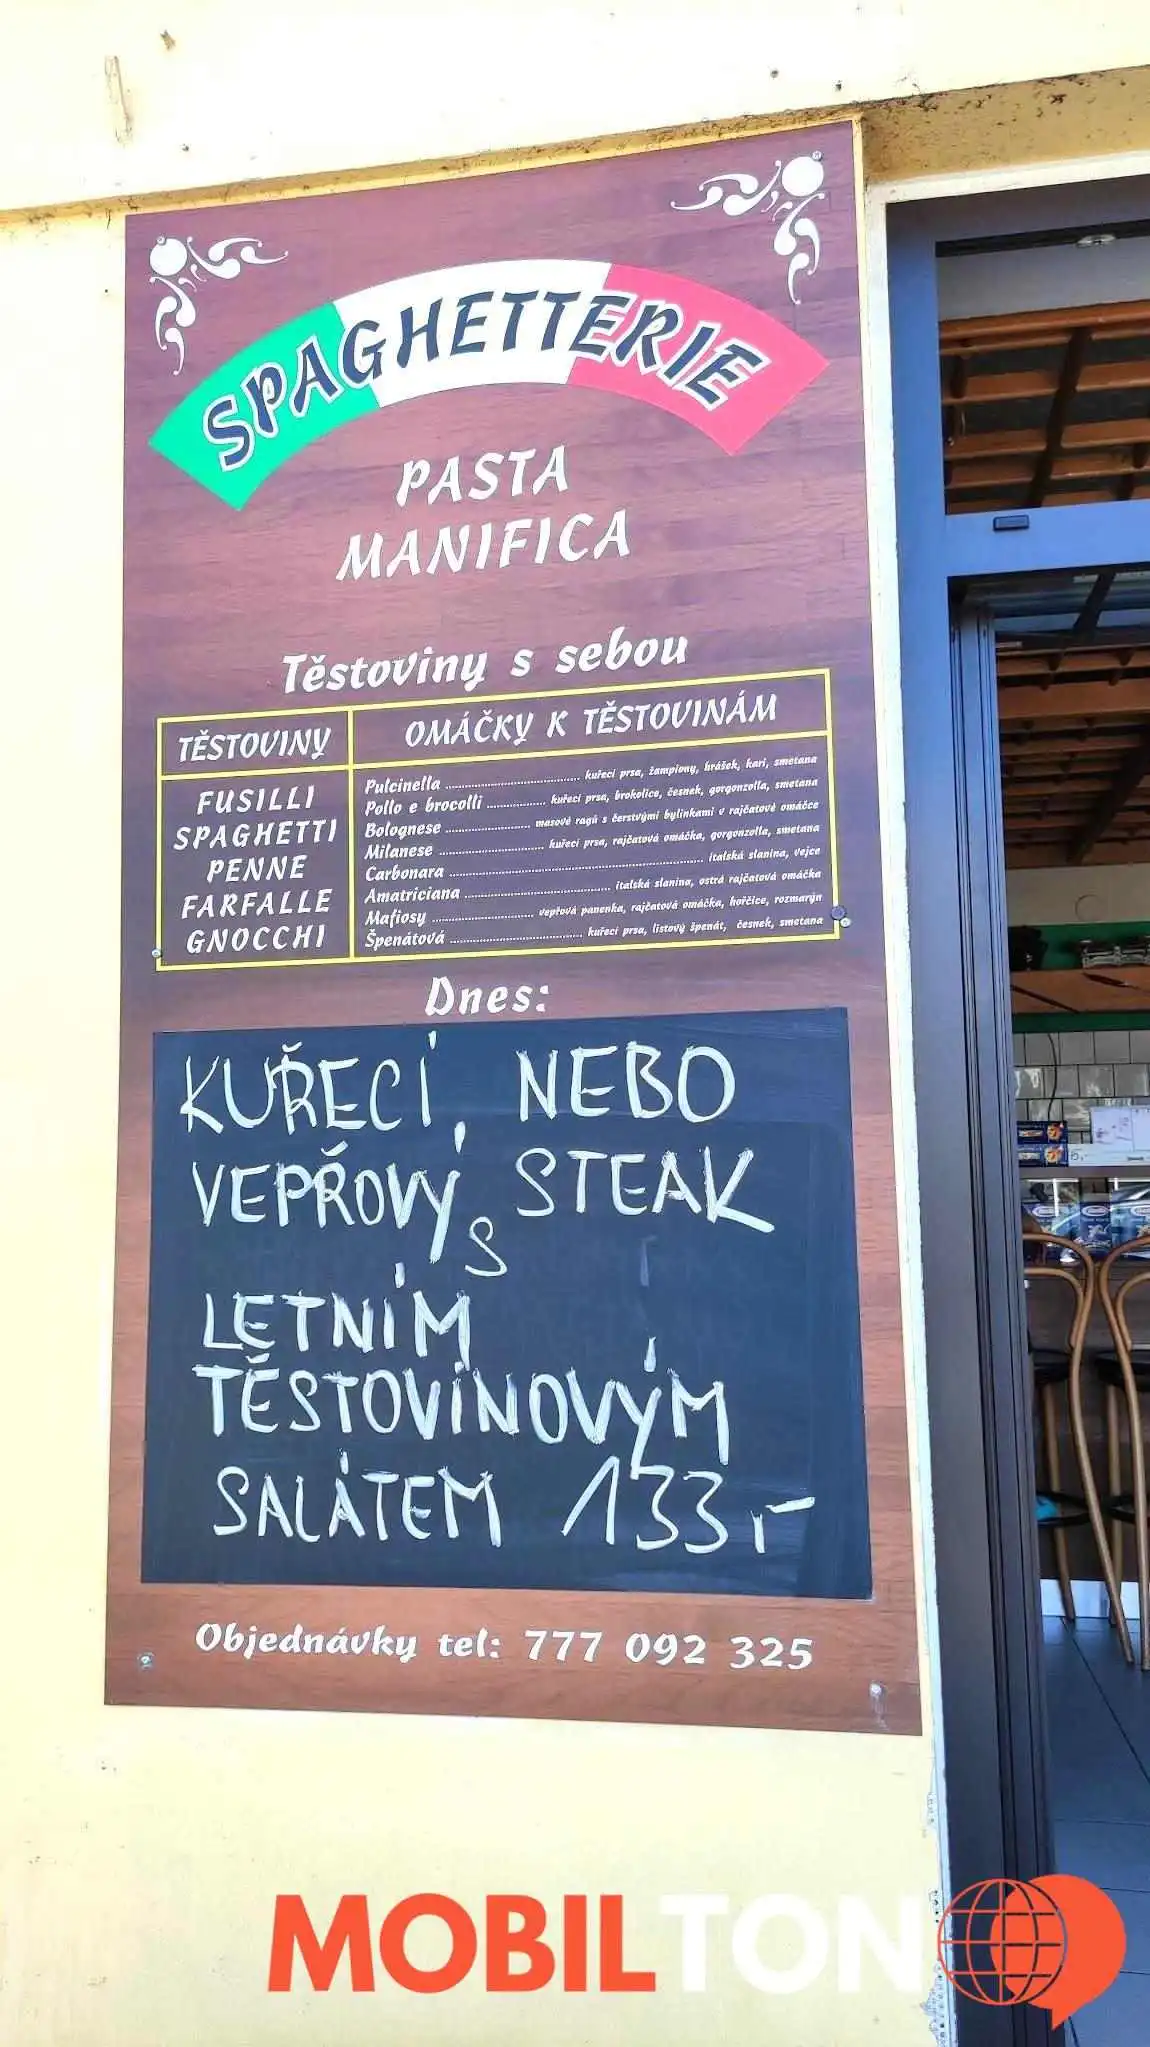 SPAGHETTERIE
PASTA
MANIFICA
Těstoviny s sebou
TĚSTOVINY
FUSILLI
SPAGHETTI
PENNE
FARFALLE
GNOCCHI
OMÁČKY K TĚSTOVINÁM
Pulcinella ........ kuřecí prsa, žampiony, hrášek, kari, smetana
Pollo e brocolli ........ kuřecí prsa, brokolice, česnek, gorgonzolla, smetana
Bolognese ........ masové ragú s čerstvými bylinkami v rajčatové omáčce
Milanese ........ kuřecí prsa, rajčatová omáčka, gorgonzolla, smetana
Carbonara ........ italská slanina, vejce
Amatriciana ........ italská slanina, ostrá rajčatová omáčka
Mafiosy ........ vepřová panenka, rajčatová omáčka, hořčice, rozmarýn
Špenátová ........ kuřecí prsa, listový špenát, česnek, smetana
Dnes:
KUŘECÍ, NEBO
VEPŘOVÝ STEAK
S
LETNÍM
TĚSTOVINOVÝM
SALÁTEM 133,-
Objednávky tel: 777 092 325
MOBILTON